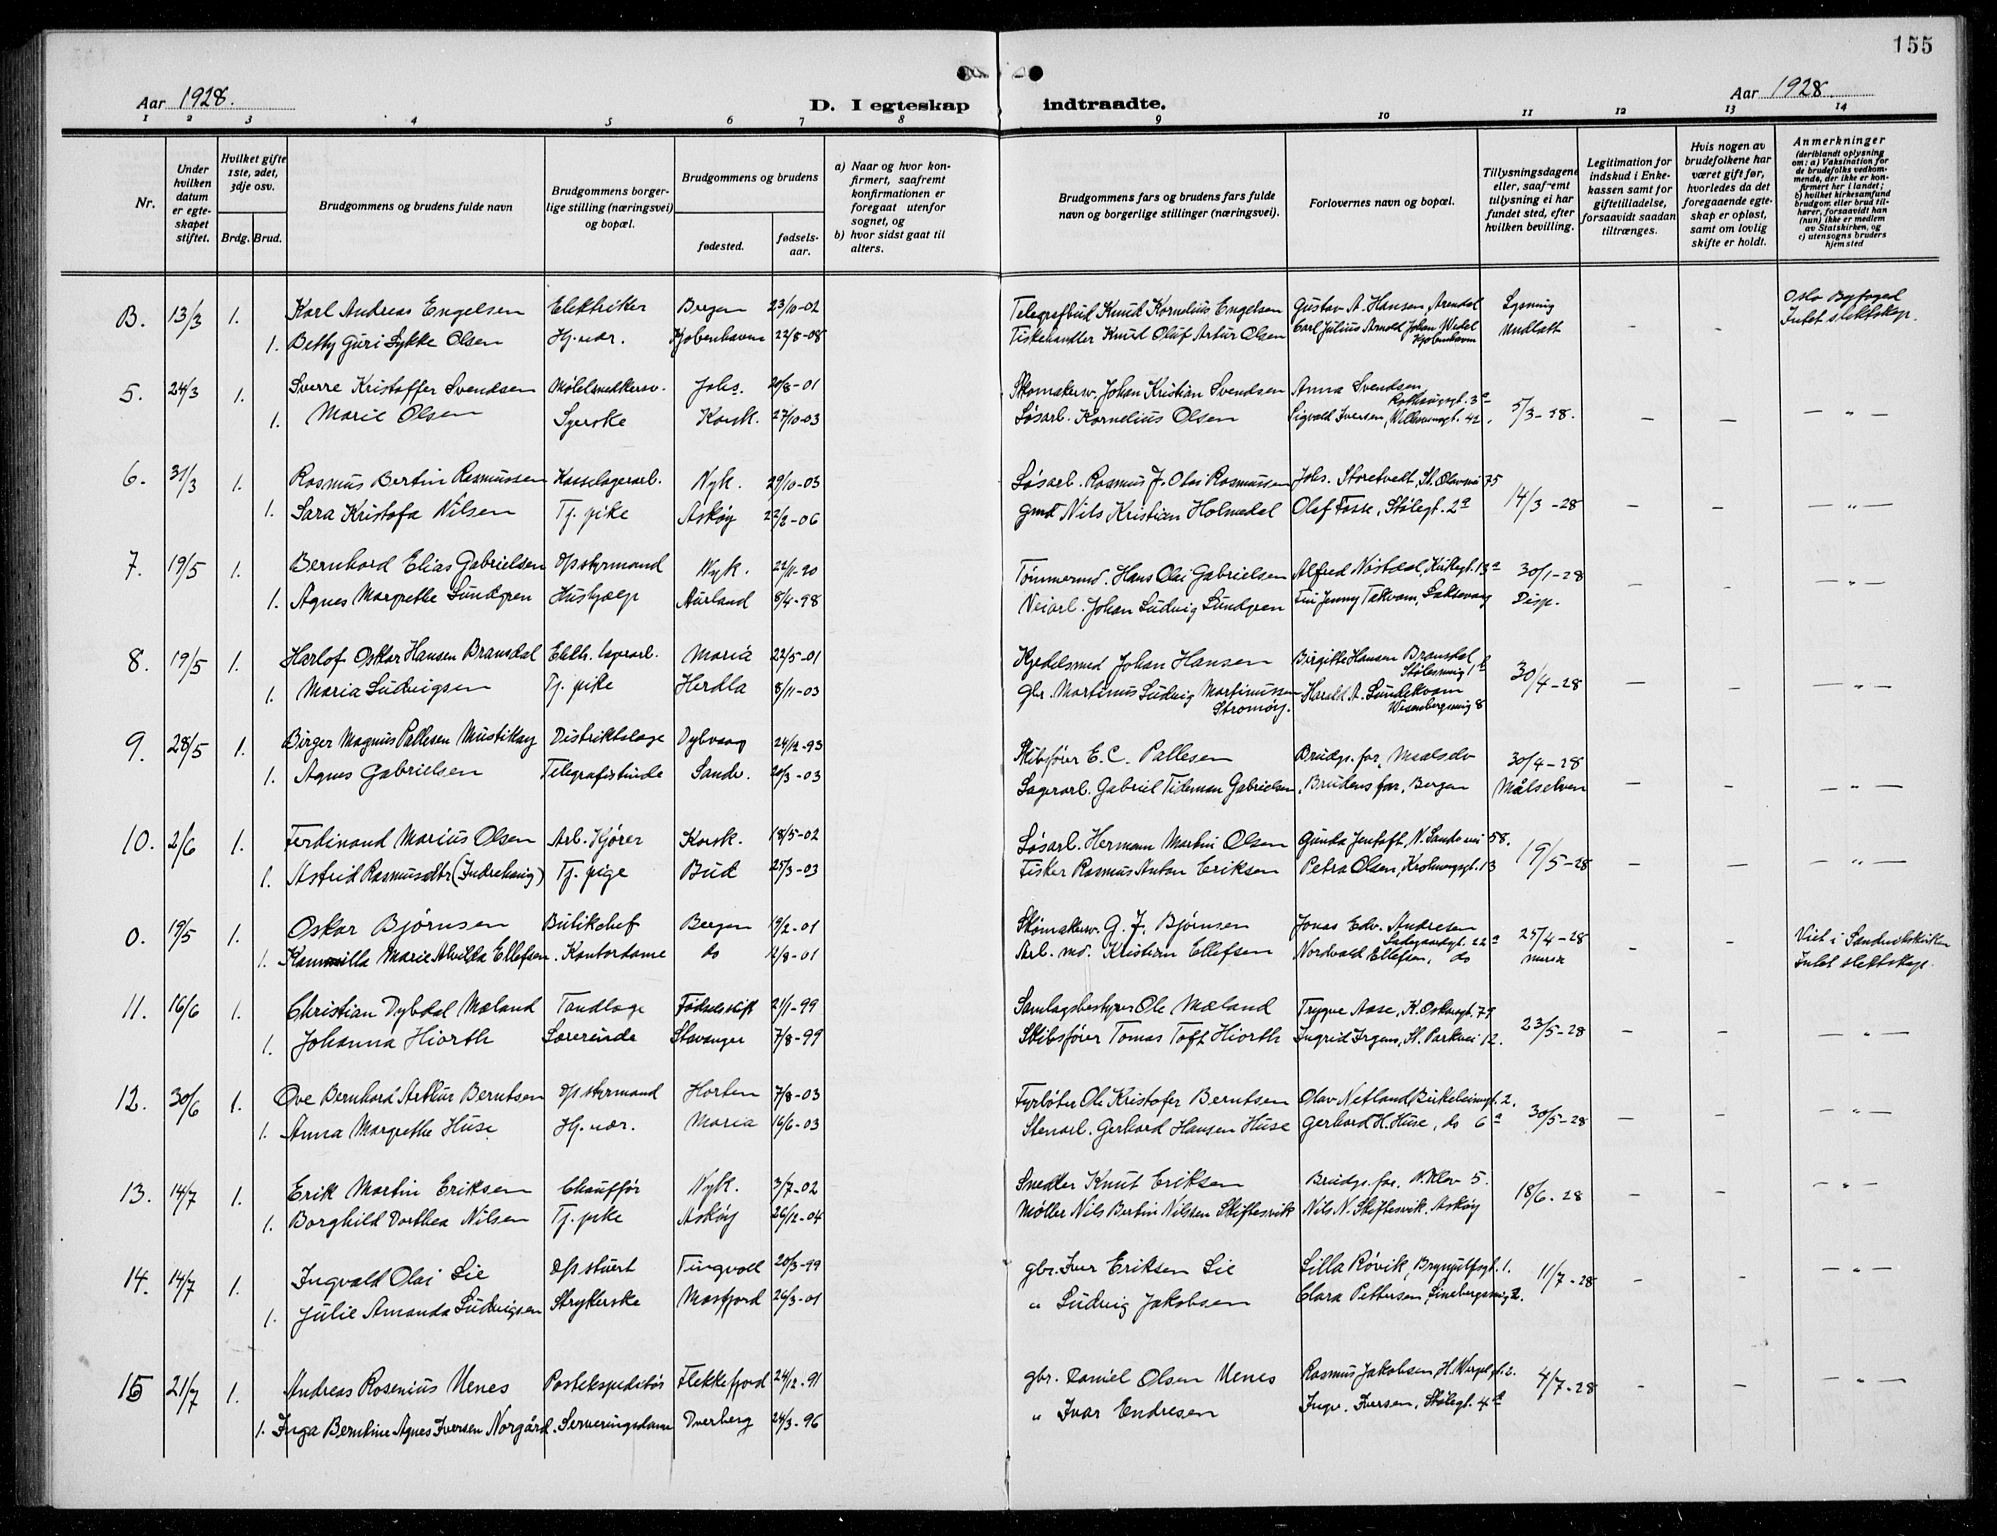 155
Aar 1928.
D. I egteskap indtraadte.
Aar 1928.
1 2 3 4 5 6 7 8 9 10 11 12 13 14
Nr.
Under hvilken datum er egteskapet stiftet.
Hvilket gifte 1ste, 2det, 3dje osv.
Brdg. Brud.
Brudgommens og brudens fulde navn
Brudgommens borgerlige stilling (næringsvei) og bopæl.
Brudgommens og brudens
fødested. fødselsaar.
a) Naar og hvor konfirmert, saafremt konfirmationen er foregaat utenfor sognet, og
b) hvor sidst gaat til alters.
Brudgommens fars og brudens fars fulde navn og borgerlige stillinger (næringsvei).
Forlovernes navn og bopæl.
Tillysningsdagene eller, saafremt tillysning ei har fundet sted, efter hvilken bevilling.
Legitimation for indskud i Enkekassen samt for giftetilladelse, forsaavidt saadan tiltrænges.
Hvis nogen av brudefolkene har været gift før, hvorledes da det foregaaende egteskap er opløst, samt om lovlig skifte er holdt.
Anmerkninger
(deriblandt oplysning om: a) Vaksination for de brudefolks vedkommende, der ikke er konfirmert her i landet; b) hvilket kirkesamfund brudgom eller brud tilhører, forsaavidt han (hun) ikke er medlem av Statskirken, og c) utensogns bruders hjemsted
B. 13/3 1. Karl Andreas Engelsen Elektriker Bergen 23/10-02 Telegrafbud Knud Kornelius Engelsen Gustav A. Hansen, Arendal Lysning Oslo Byfoged
1. Betty Guri Lykke Olsen Hj. vær. Kjøbenhavn 22/8-08 Fiskehandler Knud Oluf Artur Olsen Carl Julius Arnold Johan Wedel Kjøbenhavn undlatt – – Intet slektskap.
5. 24/3 1. Sverre Kristoffer Svendsen Møbelsnedkersv. Johs. 20/8-01 Skomakersv. Johan Kristian Svendsen Anna Svendsen, Rothaugsgt. 3a
1. Marie Olsen Syerske Korsk. 27/10-03 Løsarb. Kornelius Olsen Sigvald Iversen, 42. 5/3-28. – – – " –
6. 31/3 1. Rasmus Bertin Rasmussen Kasselagerarb. Nyk. 29/10-03 Løsarb. Rasmus J. Olai Rasmussen Johs. Storetvedt, St. Olavsvei 75
1. Sara Kristofa Nilsen Tj. pike Askøy 22/2-06 gmd Nils Kristian Holmedal Olaf Fosse, Stølegt. 2a 14/3-28 – – – " –
7. 19/5 1. Bernhard Elias Gabrielsen d/s styrmand Nyk. 22/11-90 Tømmermd. Hans Olai Gabrielsen Alfred Nøstdal, Kirkegt. 13a 30/1-28
1. Agnes Margrethe Lundgren Hushjælp Aurland 8/4-98 Veiarb. Johan Ludvig Lundgren Fru Jenny Takvam, Laksevaag Disp. – – – " –
8. 19/5 1. Harlof Oskar Hansen Bransdal Elektr. lagerarb. Maria 22/5-01 Kjedelsmed Johan Hansen Birgitte Hansen Bransdal
1. Maria Ludvigsen Tj. pike Herdla 8/11-03 gbr. Martinus Ludvig Martinussen Stromøy. Harald A. Lundekvam Wesenbergsmug 8 30/4-28 – – – " –
9. 28/5 1. Birger Magnus Pallesen Mustikay Distriktslæge Dybvaag 24/2-93 Skibsfører E. C. Pallesen Brudgs. far, Maalselv 30/4-28
1. Agnes Gabrielsen Telegrafistinde Sandv. 20/3-03 Lagerarb. Gabriel Tideman Gabrielsen, Brudens far, Bergen Målselven – – – " –
10. 2/6 1. Ferdinand Marius Olsen Arb. kjører Korsk. 18/5-02 Løsarb. Hermann Martin Olsen Gunda Jentoft, N. Sandsvei 58.
1. Astrid Rasmusdtr (Indrehaug) Tj. pige Bud 25/3-03 Fisker Rasmus Anton Eriksen Petra Olsen, Krohnengsgt. 13 19/5-28 – – – " –
0. 19/5 1. Oskar Bjørnsen Butikchef Bergen 19/2-01 Skomakersv. G. J. Bjørnsen Jonas Edv. Andresen Ladegaardsgt. 22a 25/4-28 Viet i Sandvikskirken
1. Kammilla Marie Alvilda Ellefsen. Kontordame do 12/8-01 Arb. md. Kristian Ellefsen Nordvald Ellefsen, do – – Intet slektskap.
11. 16/6 1. Christian Dybdal Mæland Tandlæge Fødselsstift 21/1-99 Samlagsbestyrer Ole Mæland Trygve Aase, K. Oskarsgt. 79
1. Johanna Hiorth Lærerinde Stavanger 7/8-99 Skibsfører Tomas Toft Hiorth Ingrid Irgens, St. Parkvei 12. 23/5-28 – – – " –
12. 30/6 1. Ove Bernhard Arthur Berntsen d/s styrmand Horten 7/8-03 Fyrbøter Ole Kristofer Berntsen Olav Netland, Birkelundsgt. 2.
1. Anna Margrethe Huse Hj. vær. Maria 16/6-03 Stenarb. Gerhard Hansen Huse Gerhard H. Huse, do 6a 30/5-28 – – – " –
13. 14/7 1. Erik Martin Eriksen Chauffør Nyk. 3/7-02 Snedker Knut Eriksen Brudgs. far. N. Klev 5.
1. Borghild Dorthea Nilsen Tj. pike Askøy 26/12-04 Møller Nils Bertin Nilssen Skiftesvik Nils N. Skiftesvik, Askøy 18/6-28 – – – " –
14. 14/7 1. Ingvald Olai Lie d/s stuert Tingvoll 20/3-99 gbr. Iver Eriksen Lie Lilla Røvik, Brynjulfsgt. 1.
1. Julie Amanda Ludvigsen Strykerske Masfjord 26/3-01 " Ludvig Jakobsen Clara Pettersen, 2. 11/7-28 – – – " –
15 21/7 1. Andreas Rosenius Nenes Postekspeditør Flekkefjord 24/12-91 gbr. Daniel Olsen Nenes Rasmus Jakobsen H. Wergelgt. 2.
1. Inga Berntine Agnes Iversen Norgård. Serveringsdame Dverberg 24/3-96 " Ivar Endresen Ingv. Iversen, Stølegt. 4a 4/7-28 – – – " –